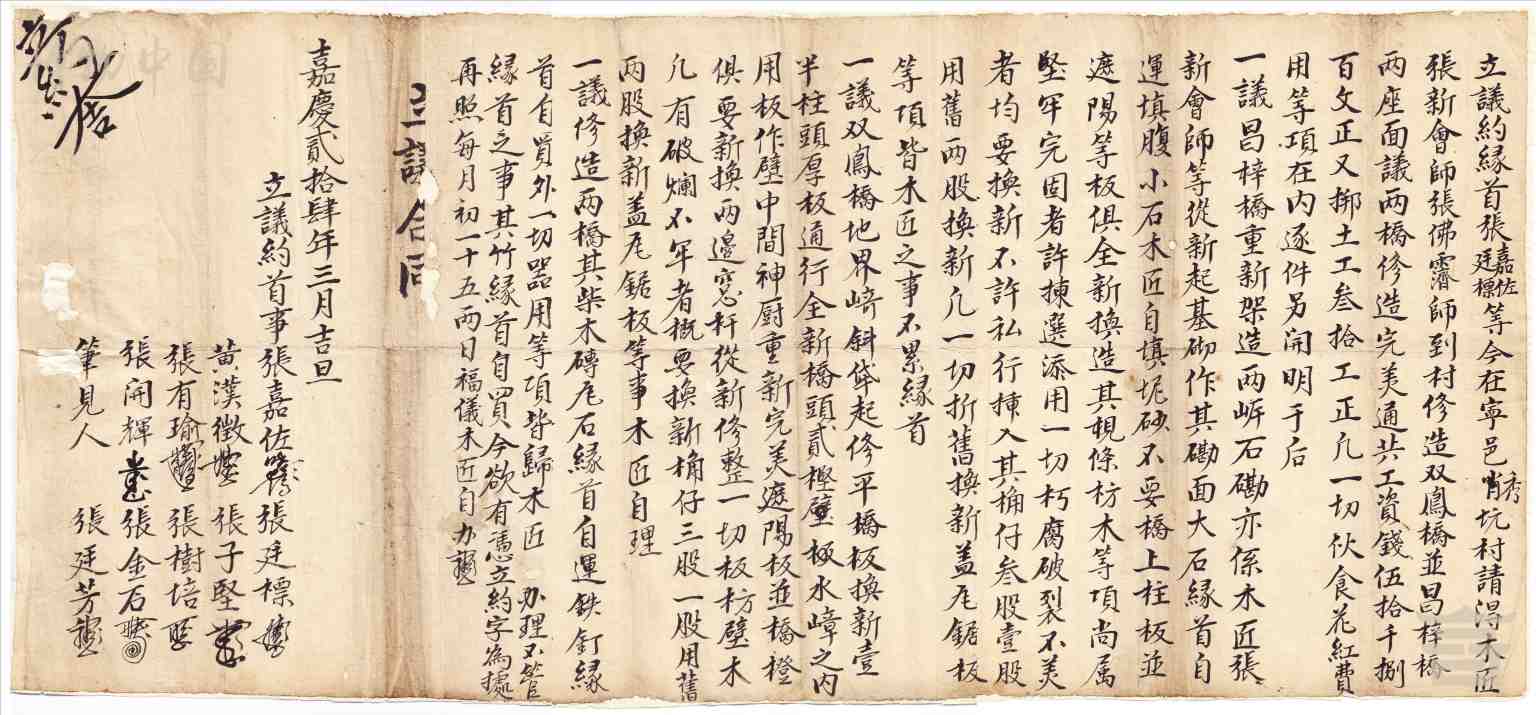 立議約緣首張嘉佐廷標等今在寧邑秀坑村請得木匠
張新會師張佛霑師到村修造双鳳橋並昌梓橋
兩座面議兩橋修造完美通共工資錢伍拾千捌
百文正又挪土工叁拾工正凡一切伙食花紅費
用等項在內逐件另開明于后
一議昌梓橋重新架造兩岸石磡亦係木匠張
新會師等從新起基砌作其磡面大石緣首自
運填腹小石木匠自填坭砂不要橋上柱板並
遮陽等板俱全新換造其枧條枋木等項尚属
堅牢完固者許揀選添用一切朽腐破裂不美
者均要換新不許私行揀入其桷仔叁股壹股
用舊兩股換新凡一切折舊換新盖瓦鋸板
等項皆木匠之事不累緣首
一議双鳳橋地界崎斜貸起修平橋板換新壹
半柱頭厚板通行全新橋頭貳樫壁板水嶂之内
用板作壁中間神厨重新完美遮陽板並橋橙
俱要新換兩邊窓杆從新修整一切板枋壁木
凡有破爛不牢者概要換新桷仔三股一股用舊
两股換新盖瓦鋸板等事木匠自理
一議修造两橋其柴木磚瓦石緣首自運鉄釘緣
首自買外一切器用等項皆歸木匠 办理不管
緣首之事其竹緣首自買今欲有憑立約字為據
再照每月初一十五两日福儀木匠自办
立議合同
嘉慶貳拾肆年三月吉旦
立議約首事張嘉佐 張廷標
黃漢徵 張子堅
張有瑜 張樹培
張開輝 張金石
筆見人 張廷芳